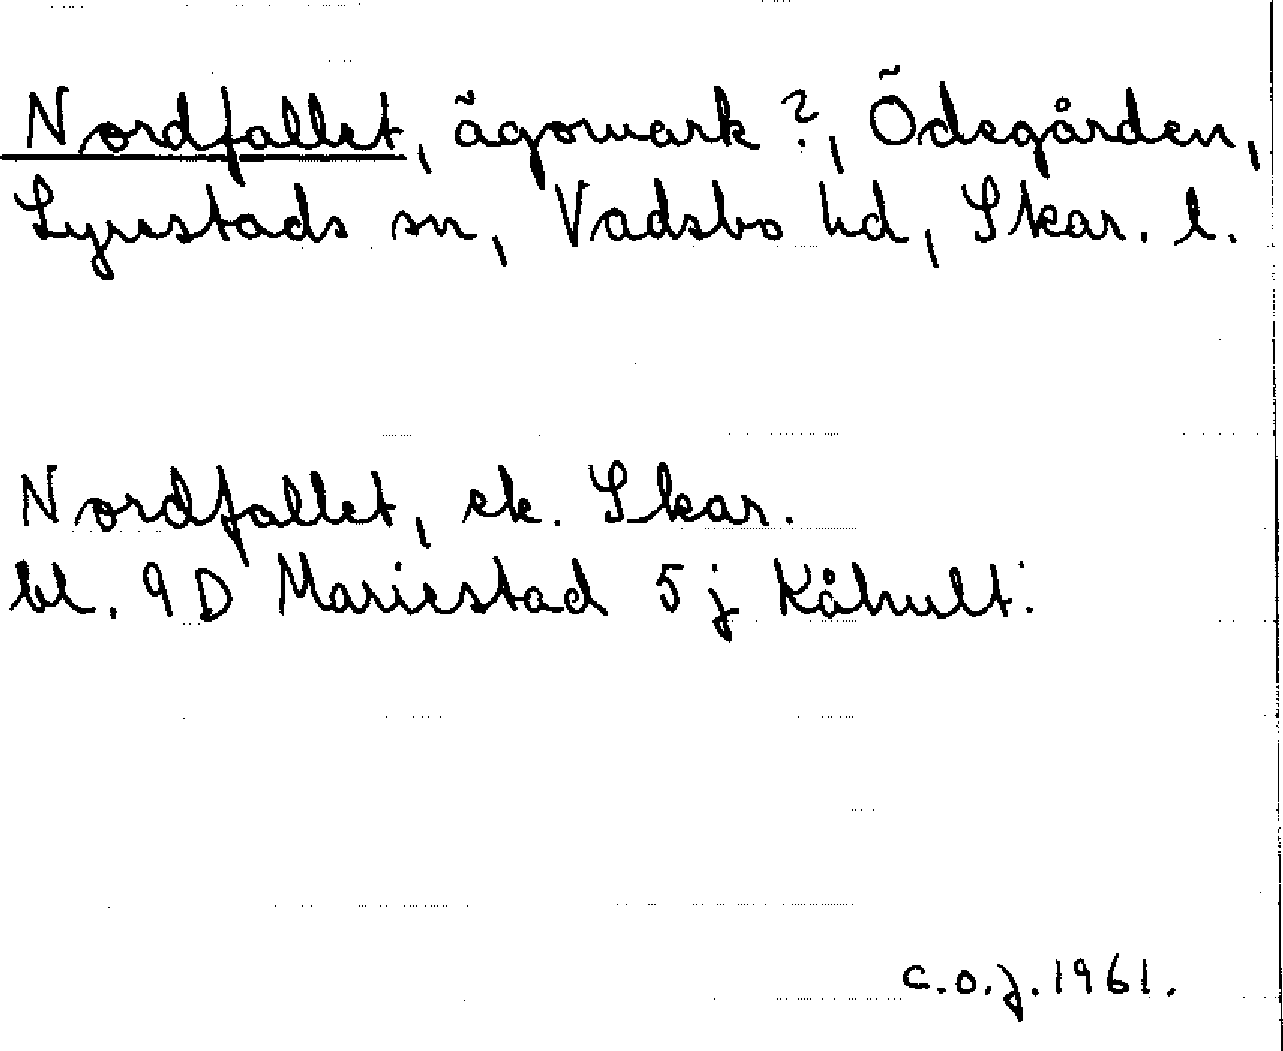 Nordfallet, ägomark?, Ödegården,
Lyrestads sn, Vadsbo hd, Skar. l.
Nordfallet, ek. Skar.
bl. 9D Mariestad 5j Kåhult.
C.O.J. 1961.